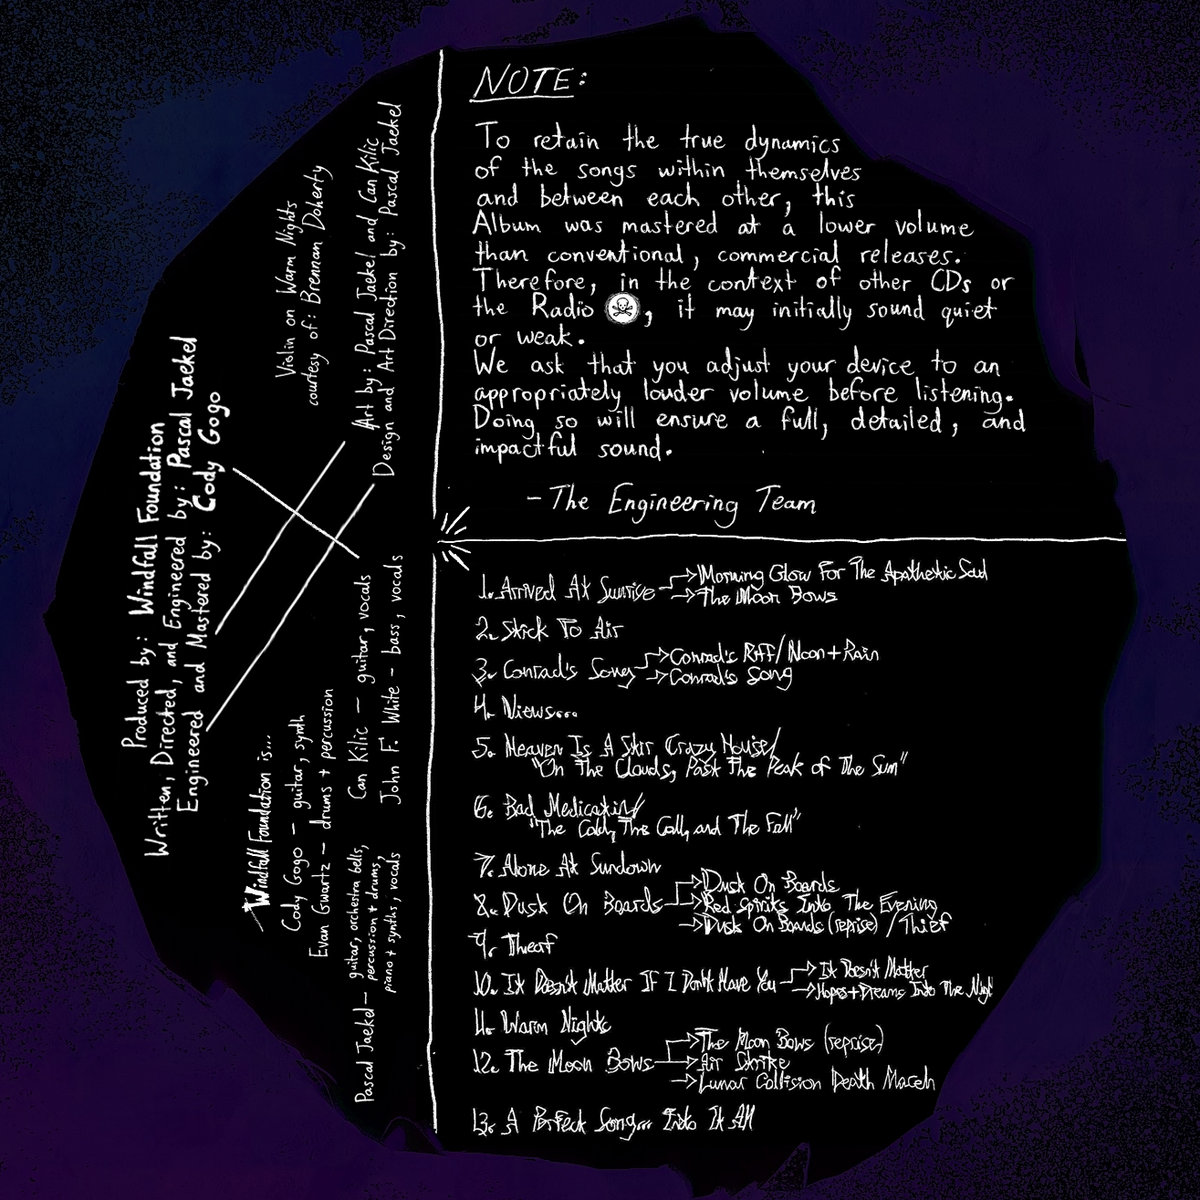 NOTE:
To retain the true dynamics
of the songs within themselves
and between each other, this
Album was mastered at a lower volume
than conventional, commercial releases.
Therefore, in the context of other CDs or
the Radio , it may initially sound quiet
or weak.
We ask that you adjust your device to an
appropriately louder volume before listening.
Doing so will ensure a full, detailed, and
impactful sound.
- The Engineering Team
1. Arrived At Sunrise
Morning Glow For The Apathetic Soul
The Moon Bows
2. Stick To Air
3. Conrad's Song
Conrad's Riff/Noon+Rain
Conrad's Song
4. Views...
5. Heaven Is A Stir Crazy House/
"On The Clouds, Past The Peak of The Sun"
6. Bad Medicatin/
"The Cold, The Call, and The Fall"
7. Alone At Sundown
8. Dusk On Boards
Dusk On Boards
Red Spirits Into The Evening
Dusk On Boards (reprise) / Thief
9. Theaf
10. It Doesn't Matter If I Don't Have You
It Doesn't Matter
Hopes+Dreams Into The Nigh
11. Warm Nights
12. The Moon Bows
The Moon Bows (reprise)
Air Strike
Lunar Collision Death March
13. A Perfect Song... Into It All
Produced by: Windfall Foundation
Written, Directed, and Engineered by: Pascal Jaekel
Engineered and Mastered by: Cody Gogo
Violin on Warm Nights
courtesy of: Brennan Doherty
Art by: Pascal Jaekel and Can Kilic
Design and Art Direction by: Pascal Jaekel
Windfall Foundation is...
Cody Gogo - guitar, synth
Evan Gwartz - drums + percussion
Pascal Jaekel - guitar, orchestra bells,
percussion + drums,
piano + synths, vocals
Can Kilic - guitar, vocals
John F. White - bass, vocals